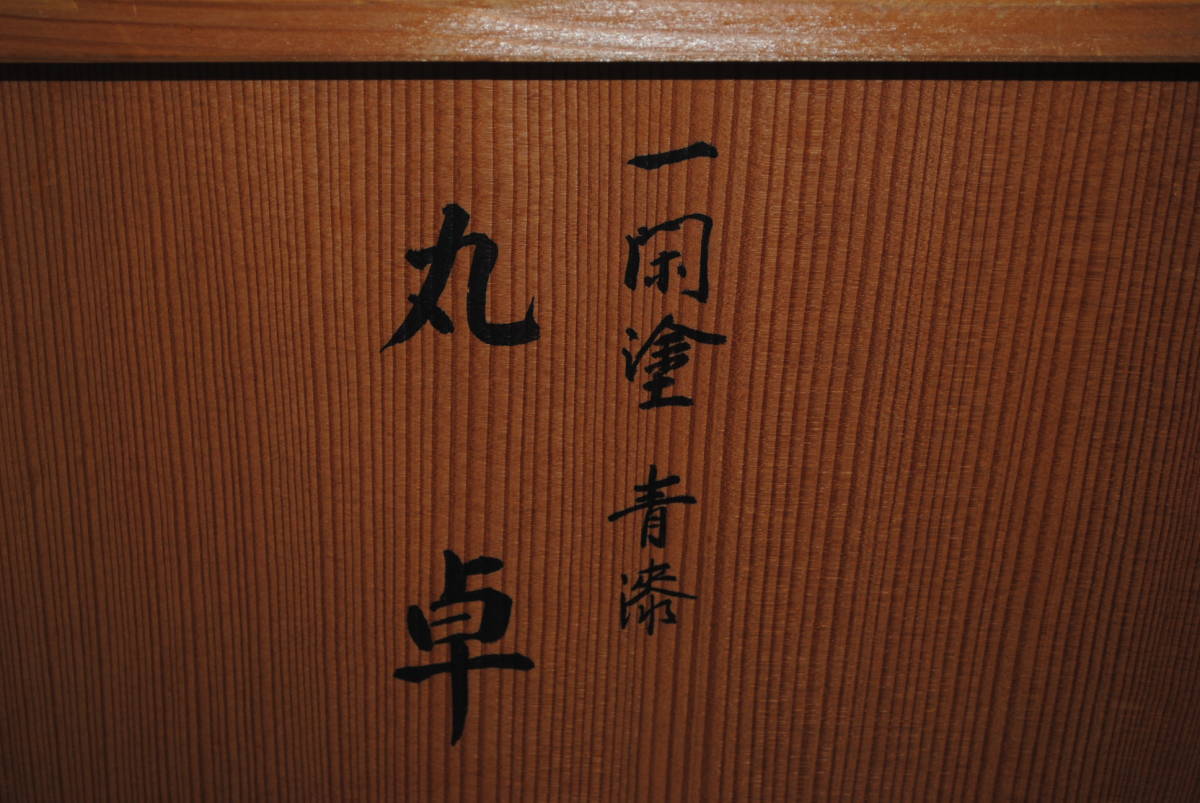 一閑塗 青漆
丸卓